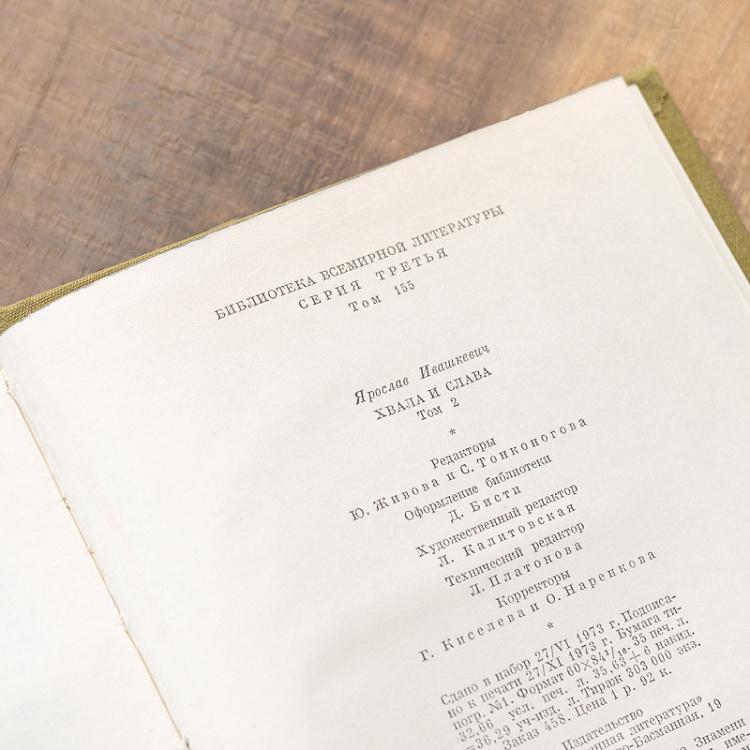 БИБЛИОТЕКА ВСЕМИРНОЙ ЛИТЕРАТУРЫ
СЕРИЯ ТРЕТЬЯ
Том 155
Ярослав Ивашкевич
ХВАЛА И СЛАВА
Том 2
*
Редакторы
Ю. Живова и С. Тонконогова
Оформление библиотеки
Д. Бисти
Художественный редактор
Л. Калитовская
Технический редактор
Л. Платонова
Корректоры
Г. Киселева и О. Наренкова
*
Сдано в набор 27/VI 1973 г. Подписа-
но к печати 27/XI 1973 г. Бумага ти-
погр. №1. Формат 60×84¹/₁₆. 35 печ. л.
32,66 усл. печ. л. 35,63+6 накид.
=36,29 уч-изд. л. Тираж 303 000 экз.
Заказ 458. Цена 1 р. 92 к.
Издательство
литература»
19
Знамени
име-